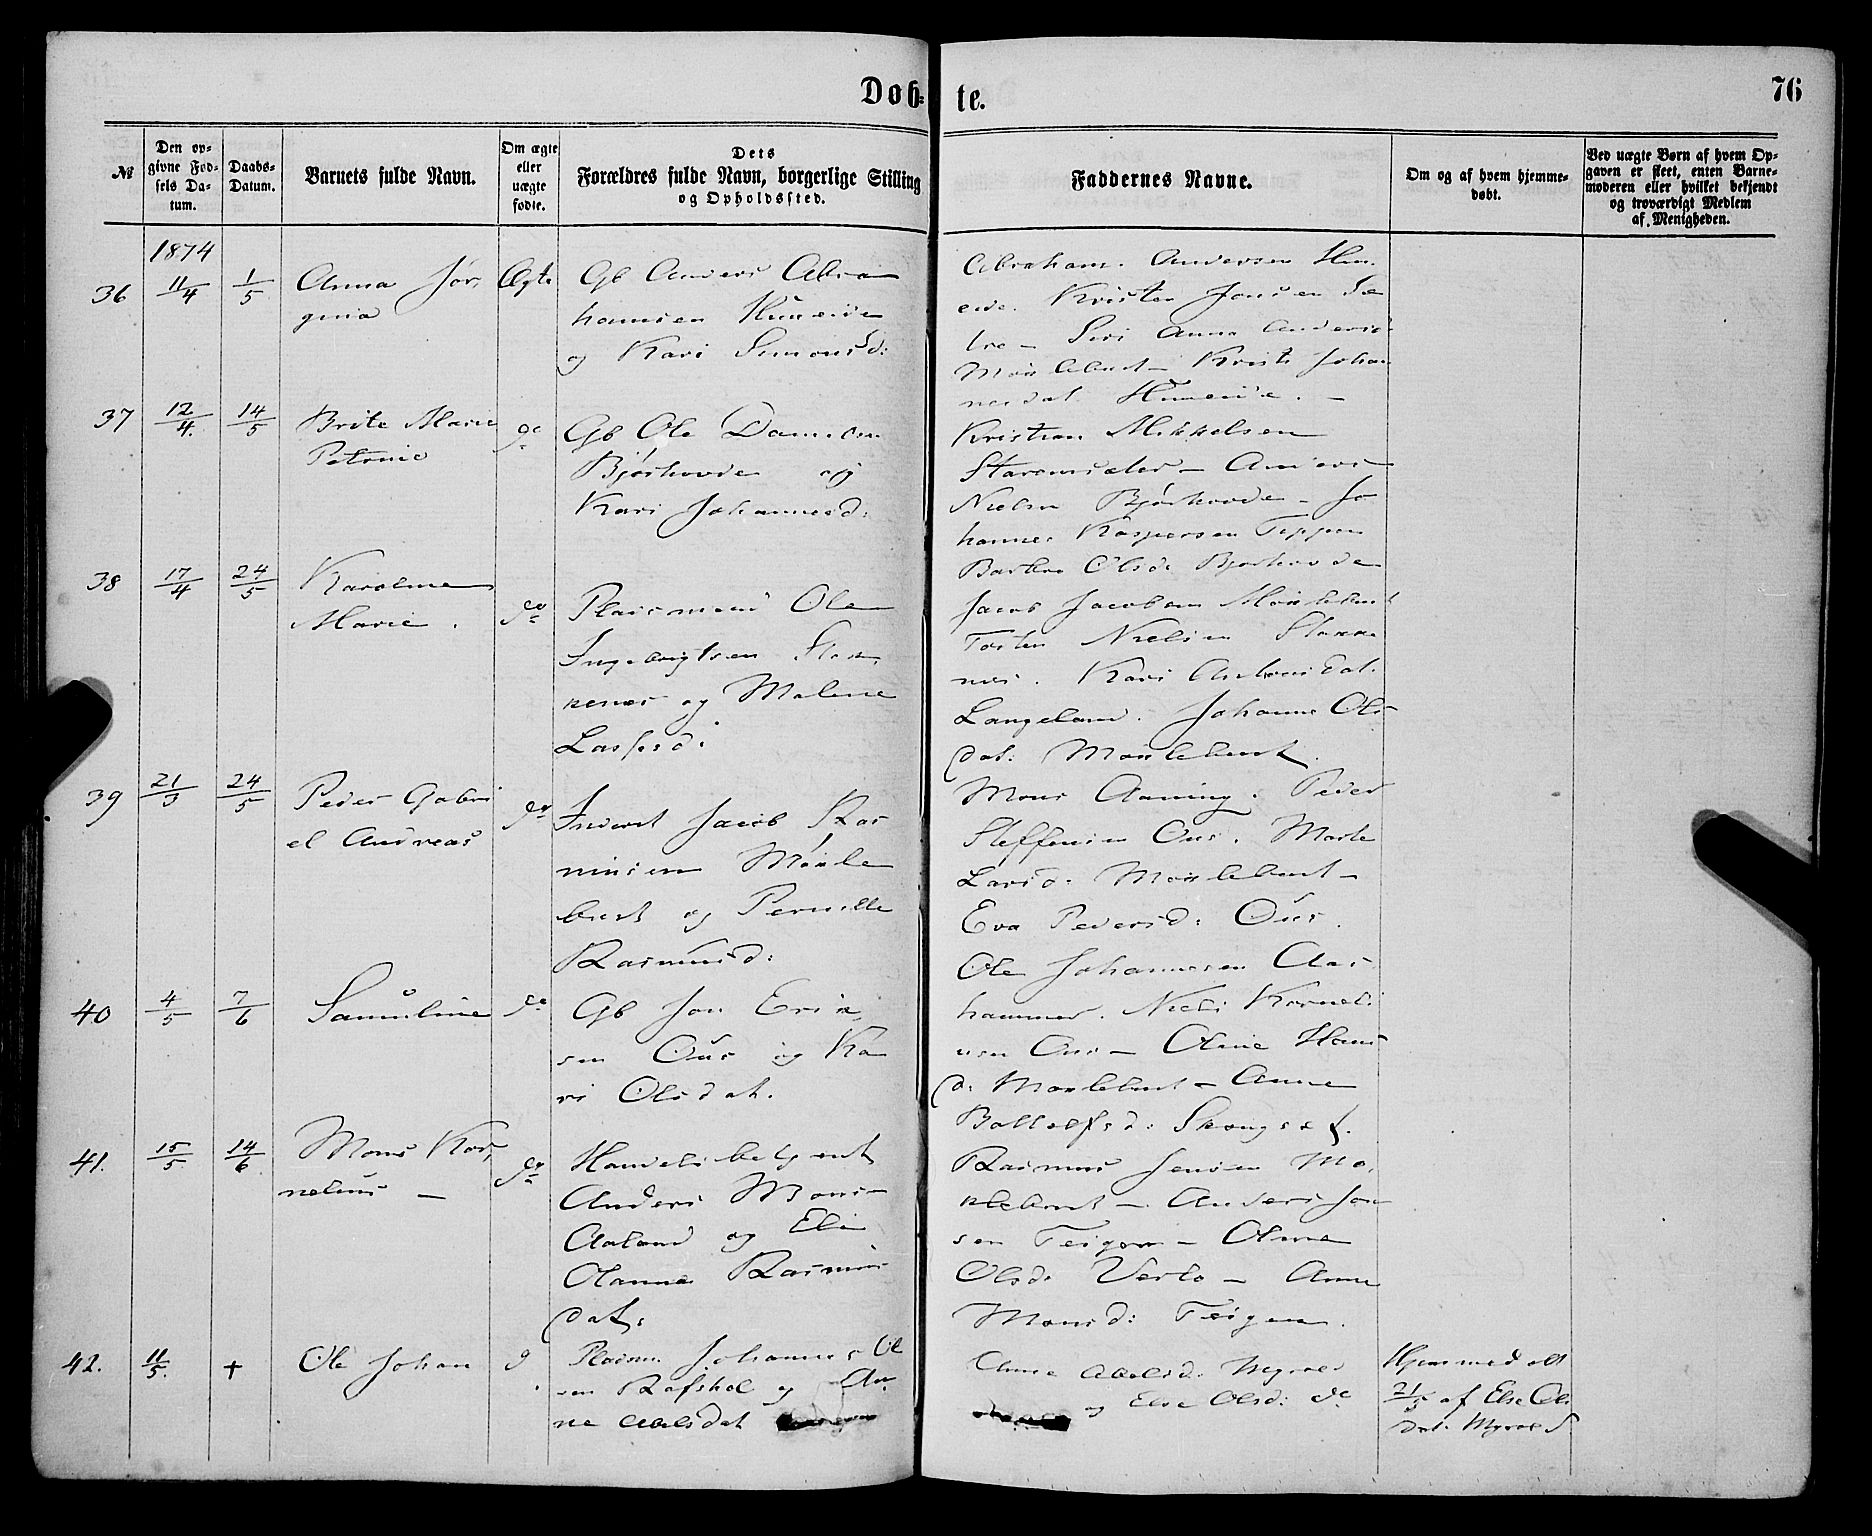 Døb= te. 76
№
Den op=
givne Fød=
sels Da=
tum.
Daabs=
Datum.
Barnets fulde Navn.
Om ægte
eller
uægte
fødte.
Dets
Forældres fulde Navn, borgerlige Stilling
og Opholdssted.
Faddernes Navne.
Om og af hvem hjemme=
døbt.
Ved uægte Børn af hvem Op=
gaven er skeet, enten Barne=
moderen eller hvilket bekjendt
og troværdigt Medlem
af Menigheden.
1874
36 11/4 1/5
Anna Jør,
gina
Ægte
Gb Anders Abra
hamsen Humeide
og Kari Simonsd:
Abraham Andersen Hum
eide. Kristen Jonsen Sæ
tre - Siri Anna Andersd
Möklebust - Kristi Johan
nesdat Humeide. -
37 12/4. 14/5
Brite Marie
Petrine
do
Gb Ole Danielsen
Bjørhovde og
Kari Johannesd:
Kristian Mikkelsen
Anders
Nielsen Bjørhovde - Jo
hannes Kaspersen Teppen
Barbro Olsd: Bjørhovde
38 17/4 24/5
Karoline
Marie.
do
Pladsmand Ole
Ingebrigtsen Stok,
kenæs og Malene
Lassesd:
Jacob Jacobsen Möklebust
Torsten Nielsen Stokke
næs. Kari Antonsdat.
Langeland. Johanne Ols
dat: Möklebust.
39 21/3 24/5
Peder Gabri
el Andreas
do
Inderst Jacob Ras
musen Mökle
bust og Pernille
Rasmusd:
Mons Aaning. Peder
Steffensen Ous. Marte
Larsd: Möklebust -
Eva Pedersd: Ous.
40 4/5 7/6
Samuline
do
Gb Jon Erik
sen Ous og Ka
ri Olsdat.
Ole Johannesen Aas
hammer. Niels Korneli
usen Ous - Oline Hans
d: Möklebust - Anne
Bottolfsd: Skongsæt.
41. 15/5 14/6
Mons Kor,
nelius -
do
Handelsbetjent
Anders Mons
Aaland og Eli
Olanna Rasmus
dat:
Rasmus Jensen Mö,
klebust - Anders Jon
sen Teigen - Oline
Olsd: Verlo - Anne
Monsd: Teigen.
42. 11/5. +
Ole Johan
d
Pladsm. Johannes Ol
sen Rafshol og An
ne Abelsdat
Anne Abelsd: Myrold
og Else Olsd: do
Hjemmedøbt
21/5 af Else Ols
dat. Myrold